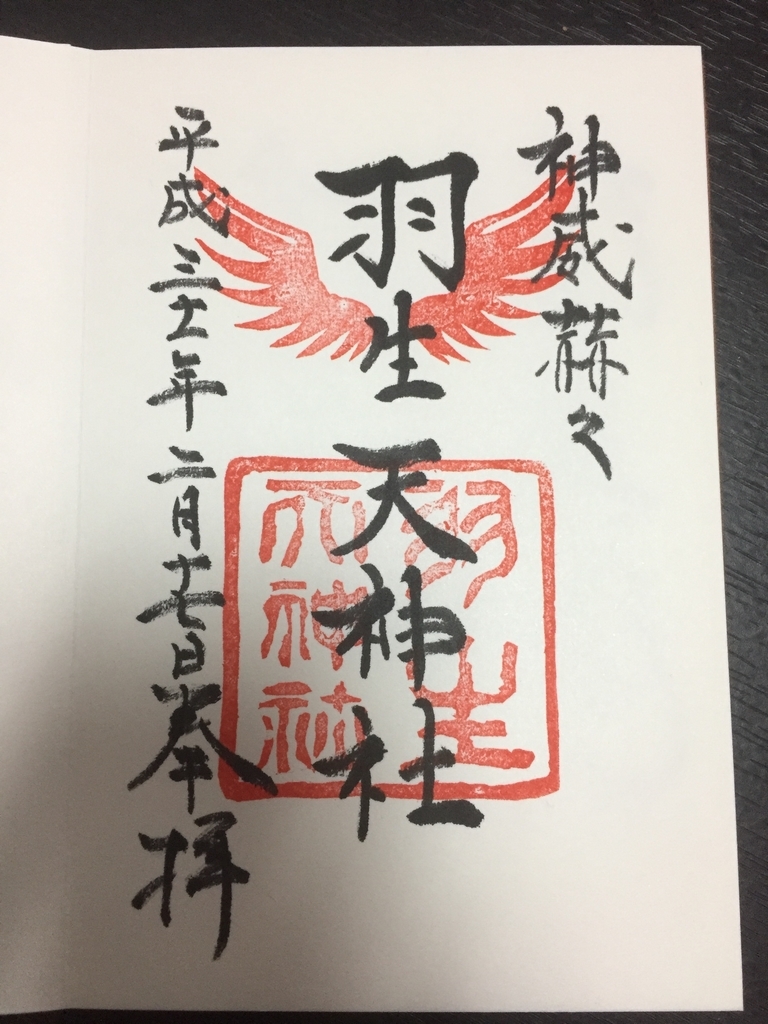 神威赫々
羽生天神社
羽生
天神社
平成三十一年二月十七日奉拝